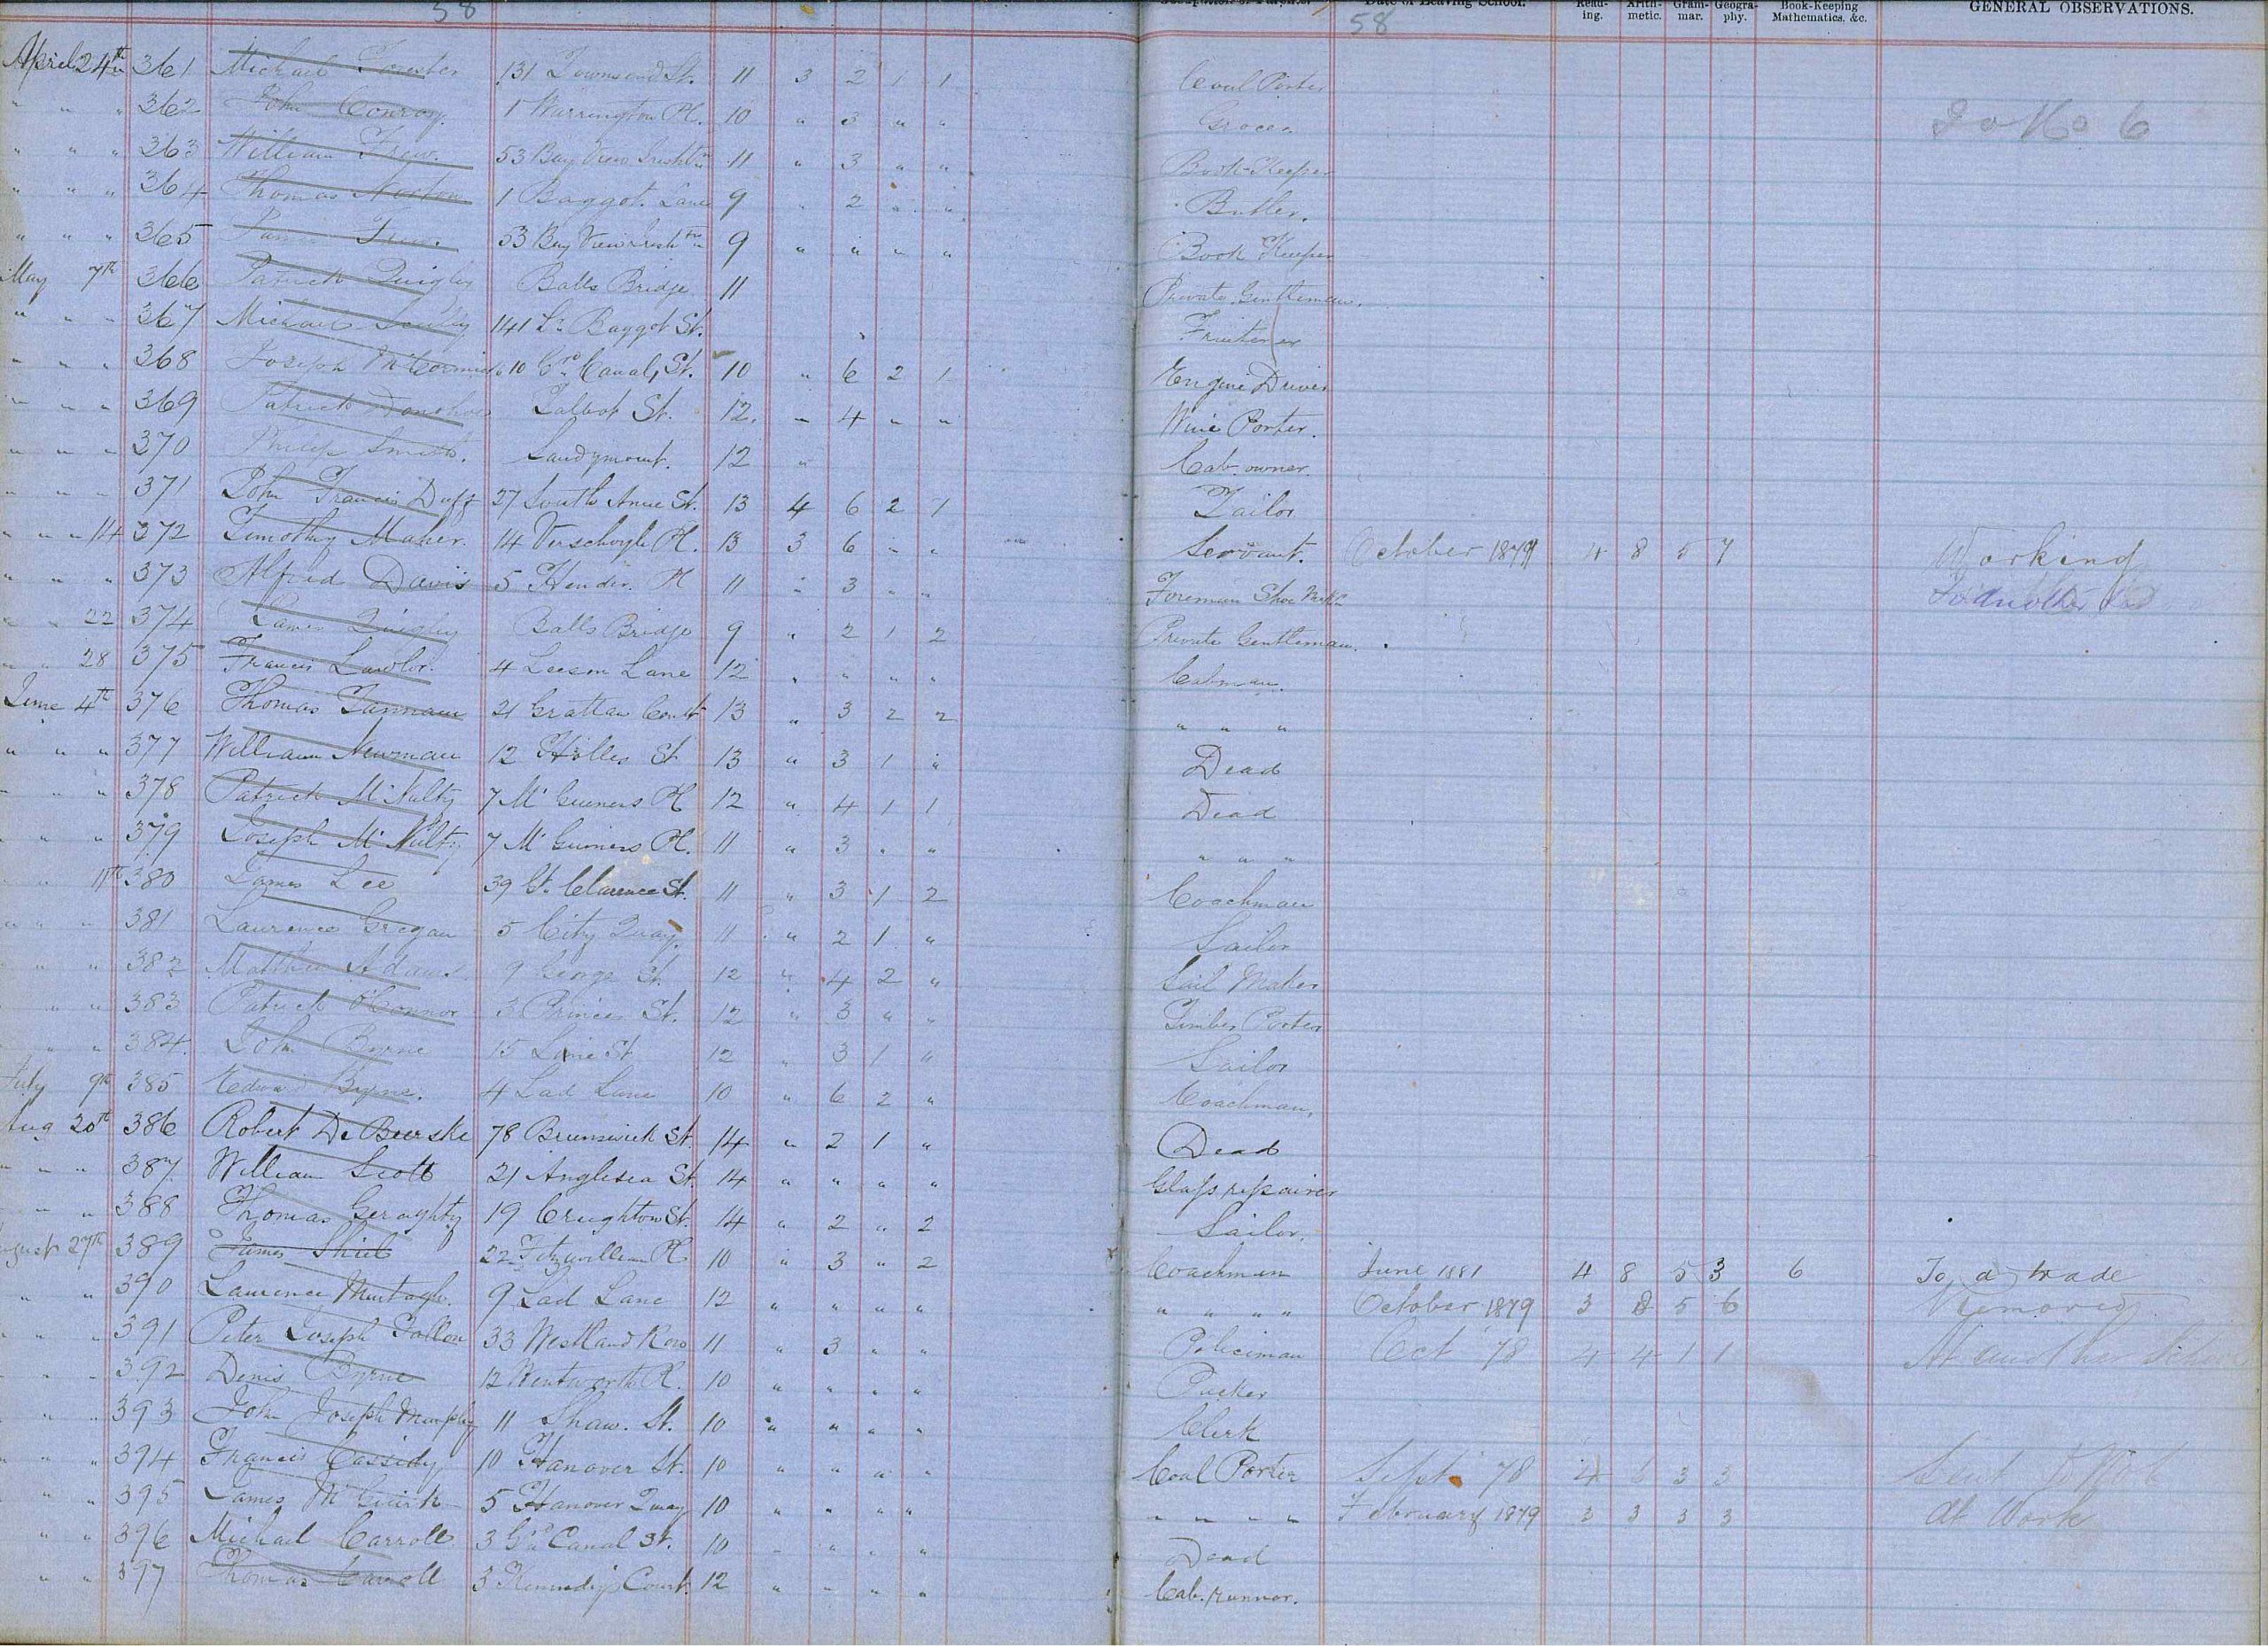 58 58
Date of Leaving School. Read-ing. Arith-metic. Gram-mar. Geogra-phy. Book-Keeping Mathematics, &c. GENERAL OBSERVATIONS.
April 24th 361 Michael Forester 131 Townsend St. 11 3 2 1 1 Coal Porter
" " " 362 John Conroy. 1 Warrington Pl. 10 " 3 " " Grocer To No 6
" " " 363 William Frew. 53 Bay View Irishtn 11 " 3 " " Book-Keeper
" " " 364 Thomas Norton 1 Baggot Lane 9 " 2 " " Butler.
" " " 365 James Frew. 53 Bay View Irishtn 9 " " " " Book Keeper
May 7th 366 Patrick Quigley Balls Bridge 11 Private Gentleman.
" " " 367 Michael Scully 141 Lr Baggot St. Fruiterer
" " " 368 Joseph McCormick 10 Grd Canal St. 10 " 6 2 1 Engine Driver
" " " 369 Patrick Donohoe Talbot St. 12. " 4 " " Wine Porter.
" " " 370 Philip Smith. Sandymount. 12 " Cab. owner.
" " " 371 John Francis Duff 27 South Anne St. 13 4 6 2 1 Tailor
" " " 14 372 Timothy Maher. 14 Verschoyle Pl. 13 3 6 " " Servant. October 1879 4 8 5 7 Working
" " " 373 Alfred Davis 5 Hender. Pl 11 " 3 " " Foreman Shoe To another
" " 22 374 James Quigley Balls Bridge 9 " 2 1 2 Private Gentleman.
" " 28 375 Francis Lawlor. 4 Leeson Lane 12 " " " " Cabman.
June 4th 376 Thomas Gannon 21 Grattan Court 13 " 3 2 2 " " "
" " " 377 William Newman 12 Holles St 13 " 3 1 " Dead
" " " 378 Patrick McNulty 7 Mc Guiners Pl 12 " 4 1 1 Dead
" " " 379 Joseph McNulty 7 Mc Guiners Pl. 11 " 3 " " " " "
" " 11th 380 James Lee 39 Gt. Clarence St. 11 " 3 1 2 Coachman
" " " 381 Laurence Grogan 5 City Quay. 11 " 2 1 " Sailor
" " " 382 Matthew Adams 9 George St. 12 " 4 2 " Sail Maker
" " " 383 Patrick O'Connor 3 Princes St. 12 " 3 " " Timber Porter
" " " 384. John Byrne 15 Lime St 12 " 3 1 " Sailor
July 9th 385 Edward Byrne. 4 Lad Lane 10 " 6 2 " Coachman,
Aug 20th 386 Robert De Burske 78 Brunswick St. 14 " 2 1 " Dead
" " " 387 William Scott 21 Anglesea St. 14 " " " " Glass repairer
" " " 388 Thomas Geraghty 19 Creighton St. 14 " 2 " 2 Sailor.
August 27th 389 James Shiel 22 Fitzwilliam Pl 10 " 3 " 2 Coachman June 1881 4 8 5 3 6 To a trade
" " 390 Laurence Murtagh. 9 Lad Lane 12 " " " " " " " " October 1879 3 8 5 6 Removed
" " " 391 Peter Joseph Fallon 33 Westland Row 11 " 3 " " Policeman Oct 78 4 4 1 1 At another School
" " " 392 Denis Byrne 12 Wentworth Pl. 10 " " " " Packer
" " " 393 John Joseph Murphy 11 Shaw. St. 10 " " " " Clerk
" " " 394 Francis Cassidy 10 Hanover St. 10 " " " " Coal Porter Sept 78 4 6 3 3
" " 395 James McGuirk 5 Hanover Quay 10 " " " " " " " " February 1879 3 3 3 3 At Work
" " 396 Michael Carroll 3 Grd Canal St. 10 " " " " Dead
" " 397 Thomas Carroll 3 Kennedy's Court. 12 " " " " Cab. runner.